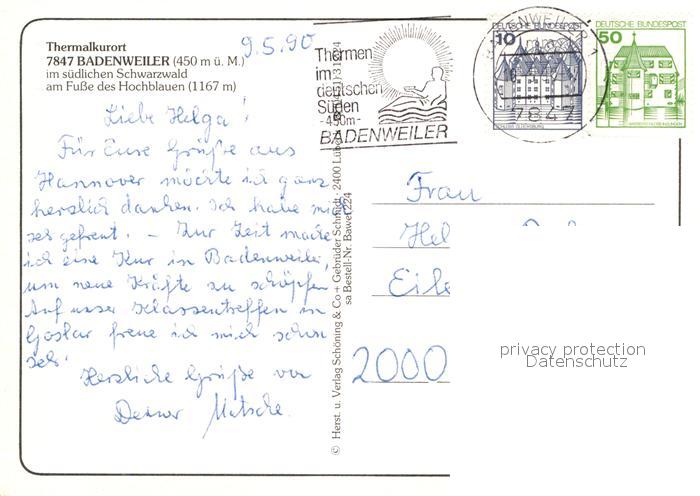 Thermalkurort
7847 BADENWEILER (450 m ü. M.)
im südlichen Schwarzwald
am Fuße des Hochblauen (1167 m)
9.5.90
Liebe Helga!
Für Eure Grüße aus
Hannover möchte ich ganz
herzlich danken. Ich habe mich
sehr gefreut. – Zur Zeit mache
ich eine Kur in Badenweiler,
um neue Kräfte zu schöpfen.
Auf unser Klassentreffen in
Goslar freue ich mich schon
sehr.
Herzliche Grüße von
Deiner
Thermen
im
deutschen
Süden
-450m-
BADENWEILER
10
DEUTSCHE BUNDESPOST
SCHLOSS GLÜCKSBURG
50
DEUTSCHE BUNDESPOST
BADENWEILER
7847
© Herst. u. Verlag Schöning & Co + Gebrüder Schmidt, 2400 Lübeck
sa Bestell-Nr. Bawei 224
Frau
Hel
Eile
2000
privacy protection
Datenschutz